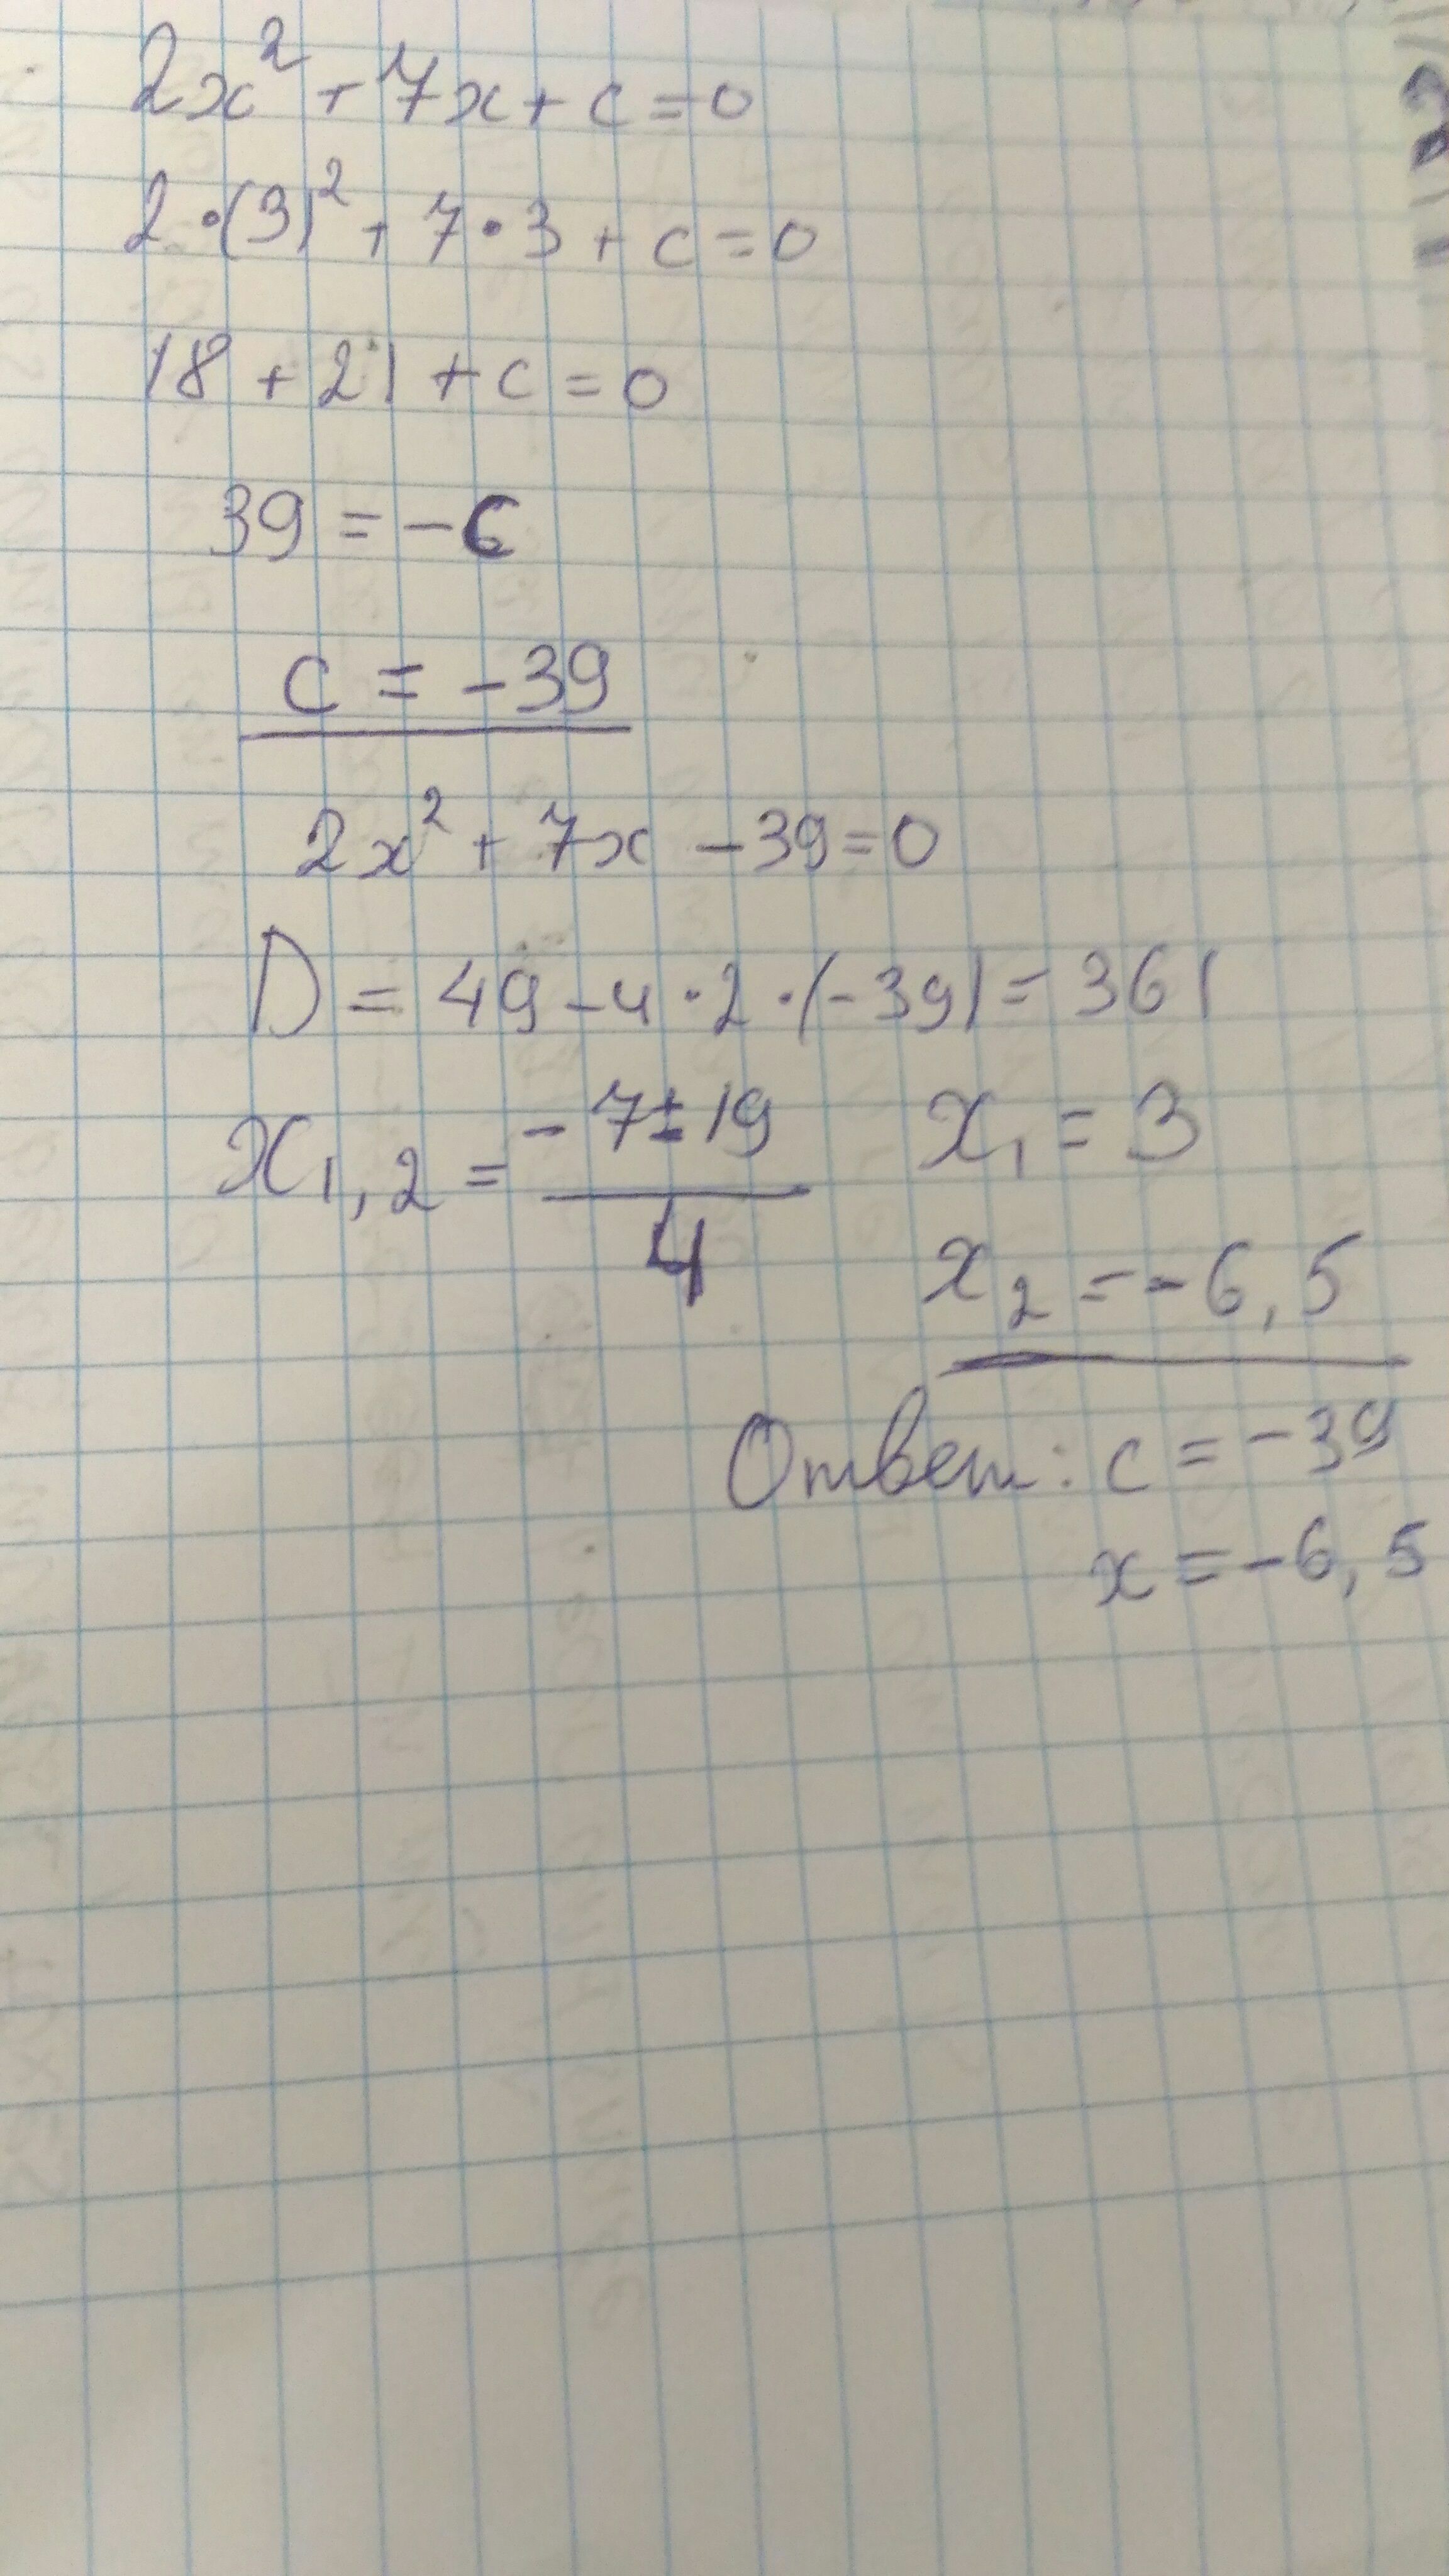 2x² + 7x + c = 0
2 · (3)² + 7 · 3 + c = 0
18 + 21 + c = 0
39 = -c
c = -39
2x² + 7x - 39 = 0
D = 49 - 4 · 2 · (-39) = 361
x₁,₂ = (-7 ± 19)/4 x₁ = 3
x₂ = -6,5
Ответ: c = -39
x = -6,5